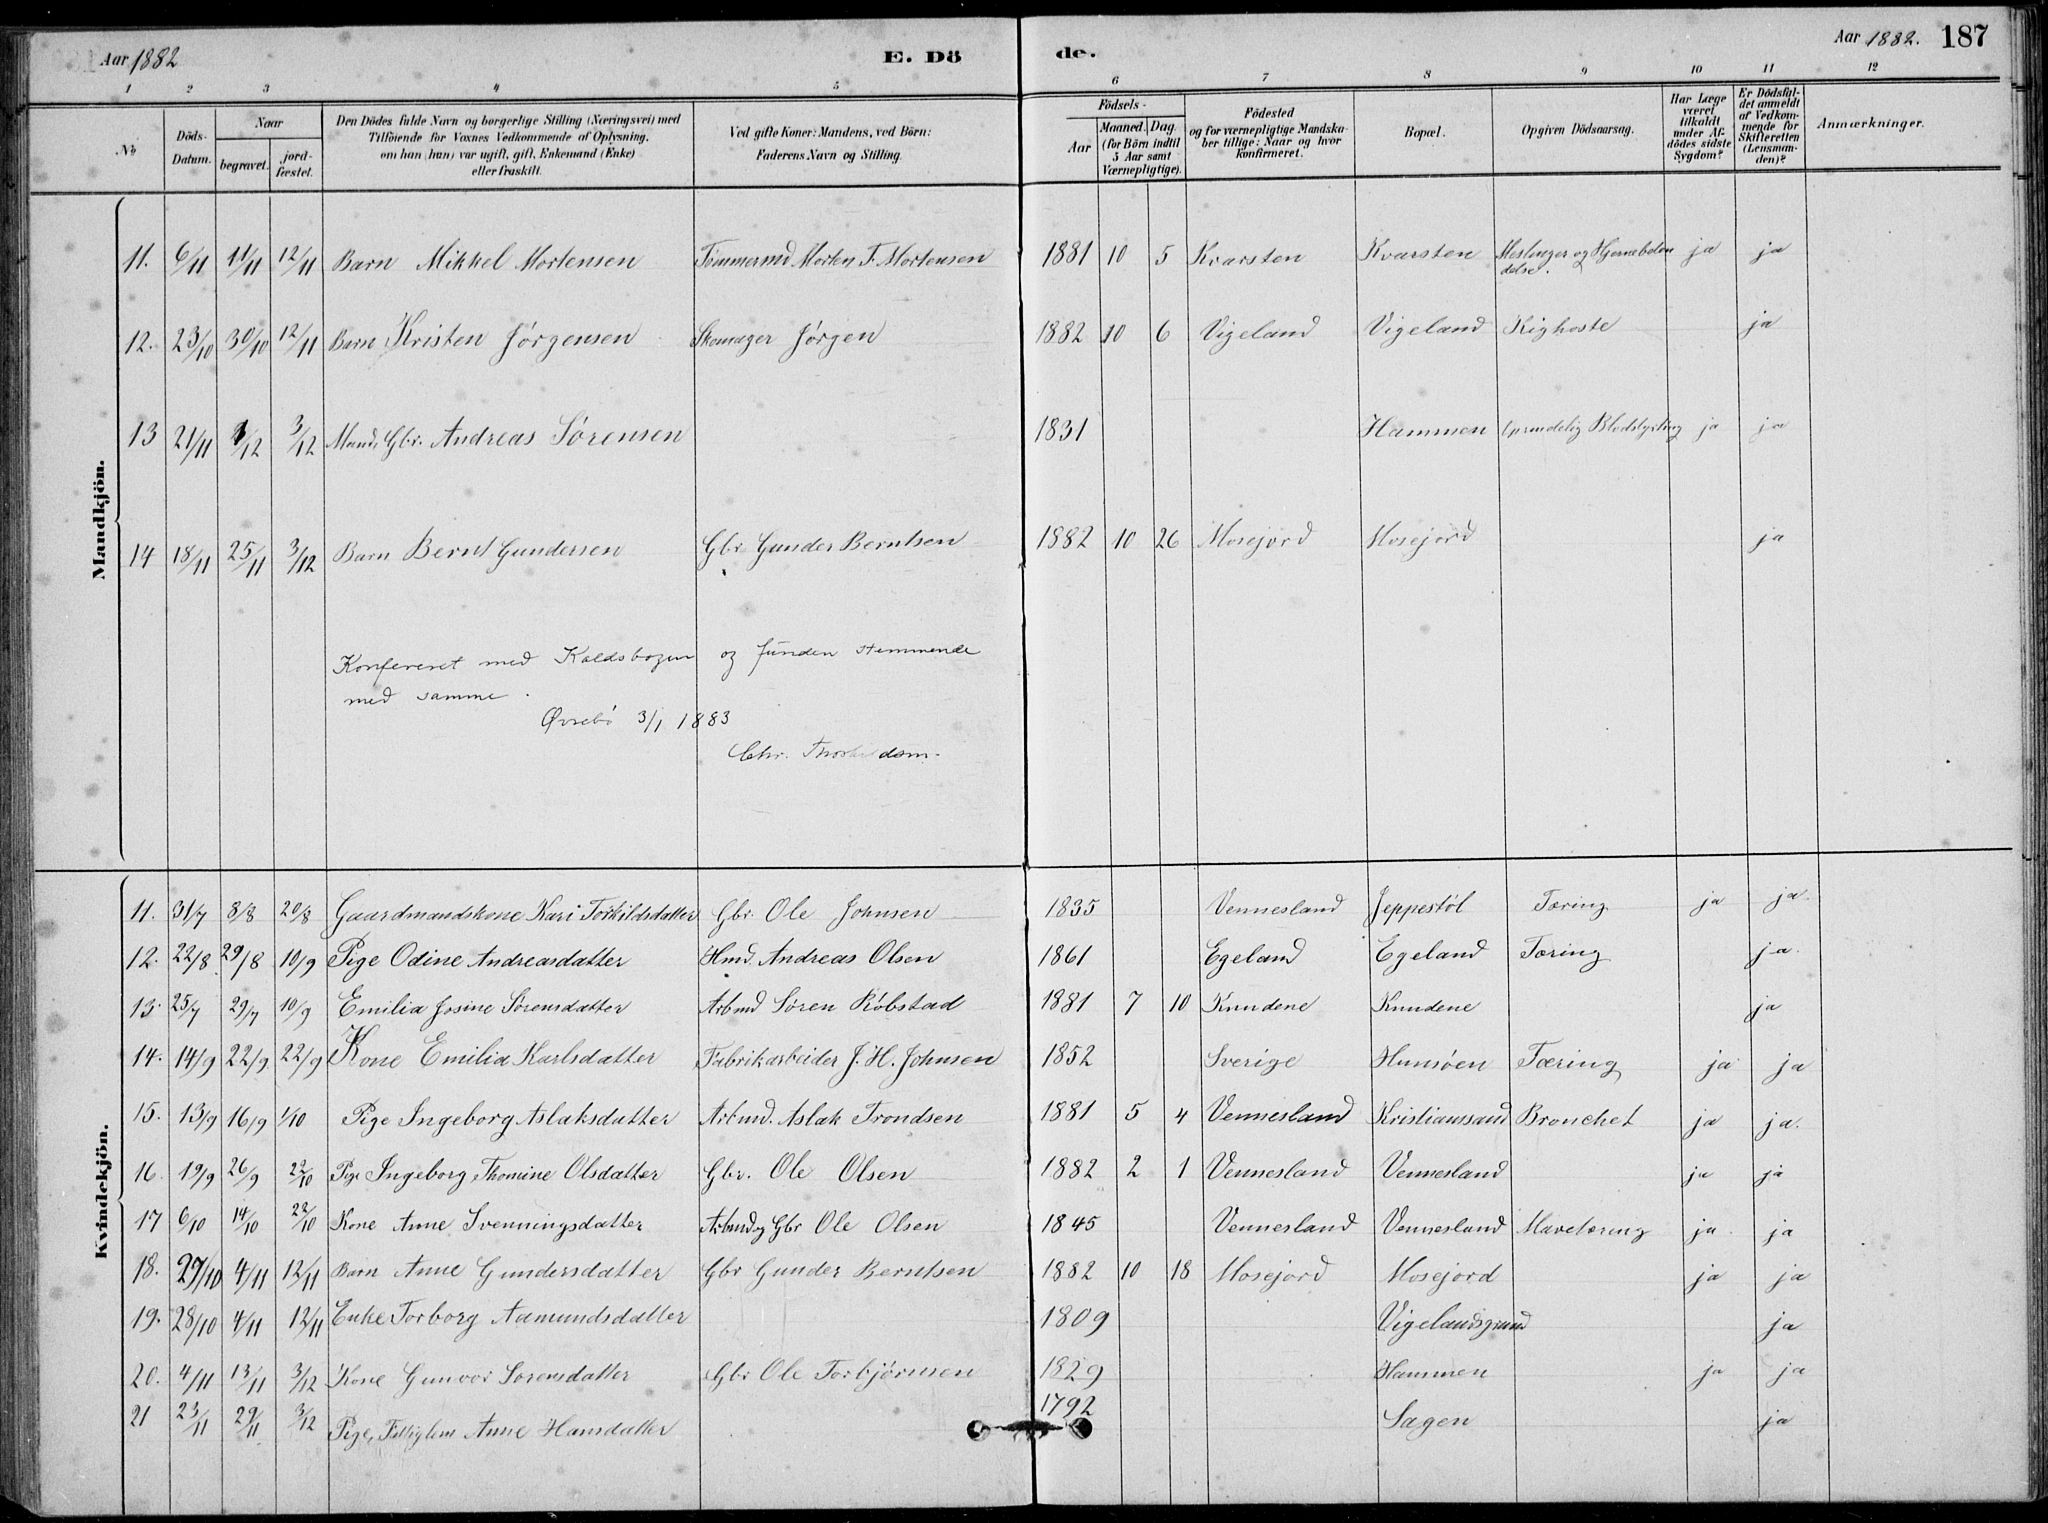 Aar 1882
E. Dö
de.
Aar 1882. 187
1 2 3 4 5 6 7 8 9 10 11 12
№ Döds-Datum. Naar begravet. jordfæstet. Den Dödes fulde Navn og borgerlige Stilling (Næringsvei) med Tilföiende for Voxnes Vedkommende af Oplysning, om han (hun) var ugift, gift, Enkemand (Enke) eller fraskilt. Ved gifte Koner: Mandens, ved Börn: Faderens Navn og Stilling. Födsels- Aar Maaned. Dag. (for Börn indtil 5 Aar samt Værnepligtige). Födested og for værnepligtige Mandskaber tillige: Naar og hvor konfirmeret. Bopæl. Opgiven Dödsaarsag. Har Læge været tilkaldt under Afdödes sidste Sygdom? Er Dödsfaldet anmeldt af Vedkommende for Skifteretten (Lensmanden)? Anmærkninger.
Mandkjön.
11. 6/11 11/11 12/11 Barn Mikkel Mortensen Tømmermd Morten T. Mortensen 1881 10 5 Kvarsten Kvarsten Meslinger og Hjernebetændelse. ja ja
12. 23/10 30/10 12/11 Barn Kristen Jørgensen Skomager Jørgen 1882 10 6 Vigeland Vigeland Kighoste ja
13 21/11 1/12 3/12 Mand, Gbr. Andreas Sørensen 1831 Hammen Blodstyrtning ja ja
14 18/11 25/11 3/12 Barn Bernt Gundersen Gbr. Gunder Berntsen 1882 10 26 Mosejord Mosejord ja
Konfereret med Kaldsbogen og funden stemmende
med samme.
Øvrebø 3/1 1883
Chr. Thorkildsen.
Kvindekjön.
11. 31/7 8/8 20/8 Gaardmandskone Kari Torkildsdatter Gbr. Ole Johnsen 1835 Vennesland Jeppestøl Tæring ja ja.
12. 22/8 29/8 10/9 Pige Odine Andreasdatter Hmd. Andreas Olsen 1861 Egeland Egeland Tæring ja.
13. 25/7 29/7 10/9 Emilia Josine Sørensdatter Arbmd Søren Røbstad 1881 7 10 Knudene Knudene ja
14. 14/9 22/9. 22/9 Kone Emilia Karlsdatter Fabrikarbeider J. H. Johnsen 1852 Sverige Hunsøen Tæring ja ja
15. 13/9 16/9 1/10 Pige Ingeborg Aslaksdatter Arbmd. Aslak Trondsen 1881 5 4 Vennesland Kristianssand Bronchet ja ja.
16. 19/9 26/9 22/10 Pige Ingeborg Thomine Olsdatter Gbr. Ole Olsen 1882 2 1 Vennesland Vennesland ja ja
17 6/10 14/10 22/10 Kone Anne Svenningsdatter Arbmd og Gbr Ole Olsen 1845 Vennesland Vennesland Mavetæring ja ja
18. 27/10 4/11 12/11 Barn Anne Gundersdatter Gbr Gunder Berntsen 1882 10 18 Mosejord Mosejord ja ja
19. 28/10 4/11 12/11 Enke Torborg Aamundsdatter 1809 Vigelandsgrund ja
20. 4/11 13/11 3/12 Kone Gunvor Sørensdatter Gbr Ole Torbjørnsen 1829 Hammen ja ja
21 23/11 29/11 3/12 Pige, Fattiglem Anne Hansdatter 1792 Sagen ja